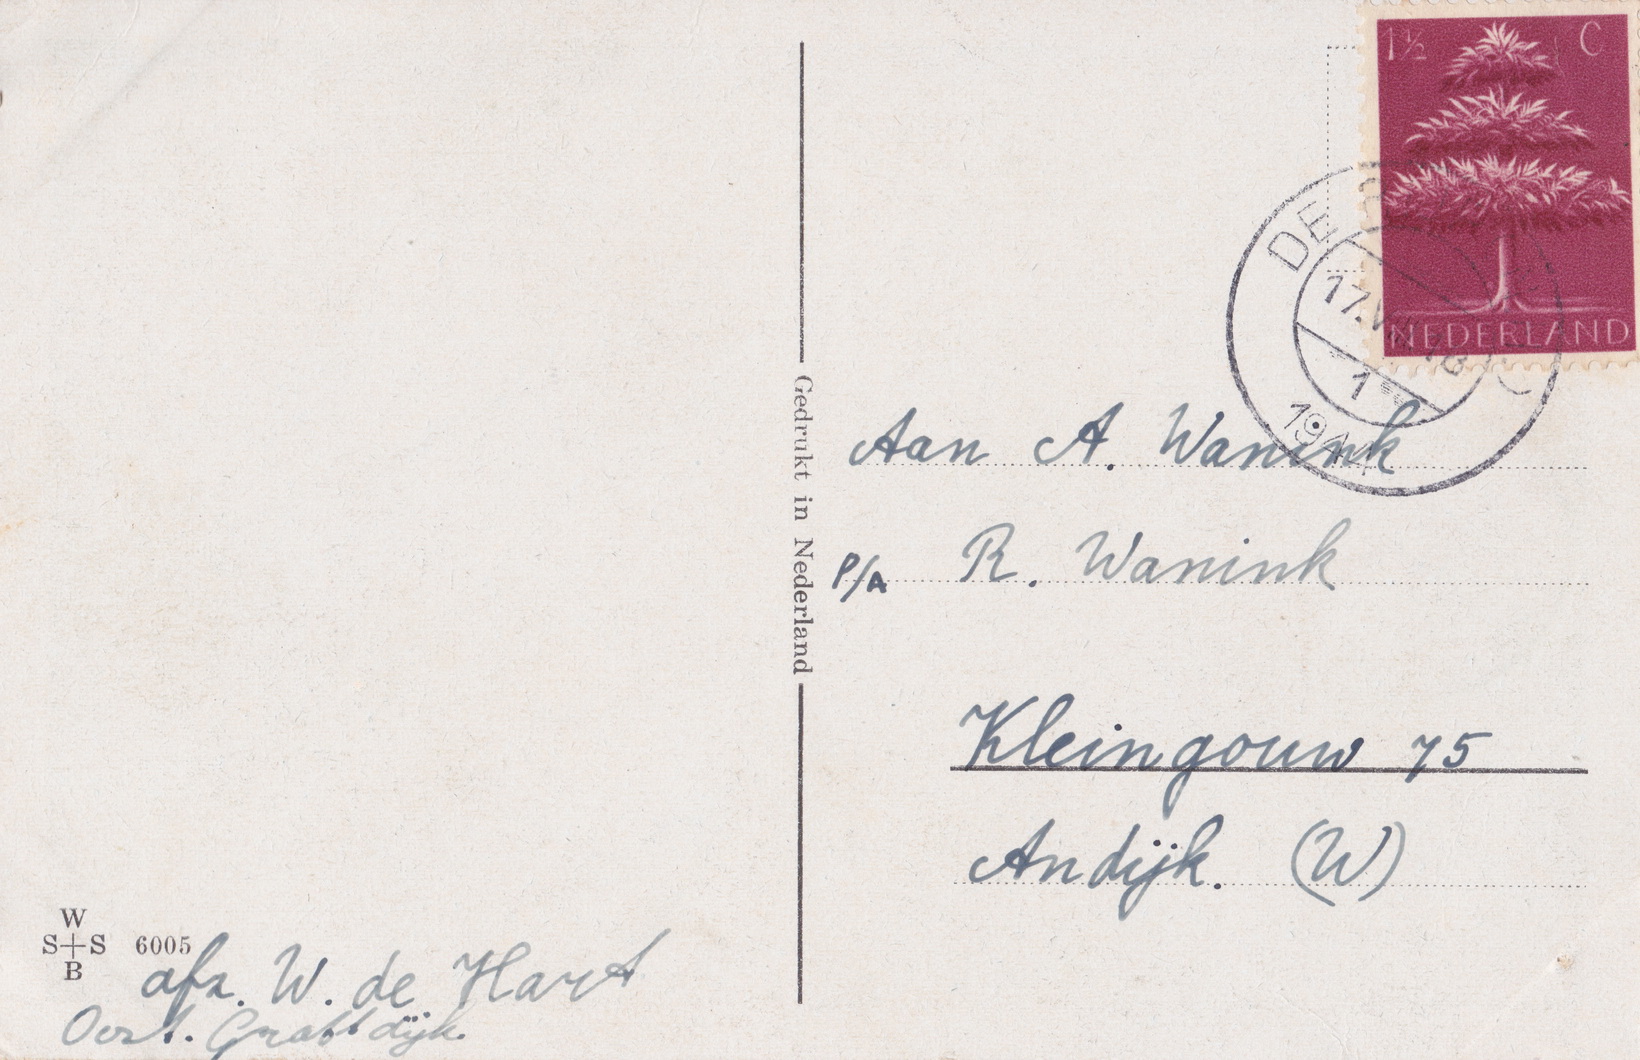 1½ C
NEDERLAND
DE
17.VIII 18
1
194
Gedrukt in Nederland
Aan A. Wanink
P/A R. Wanink
Kleingouw 75
Andijk. (W)
W
S S 6005
B
afz. W. de Hart
Oost. Graftdijk.